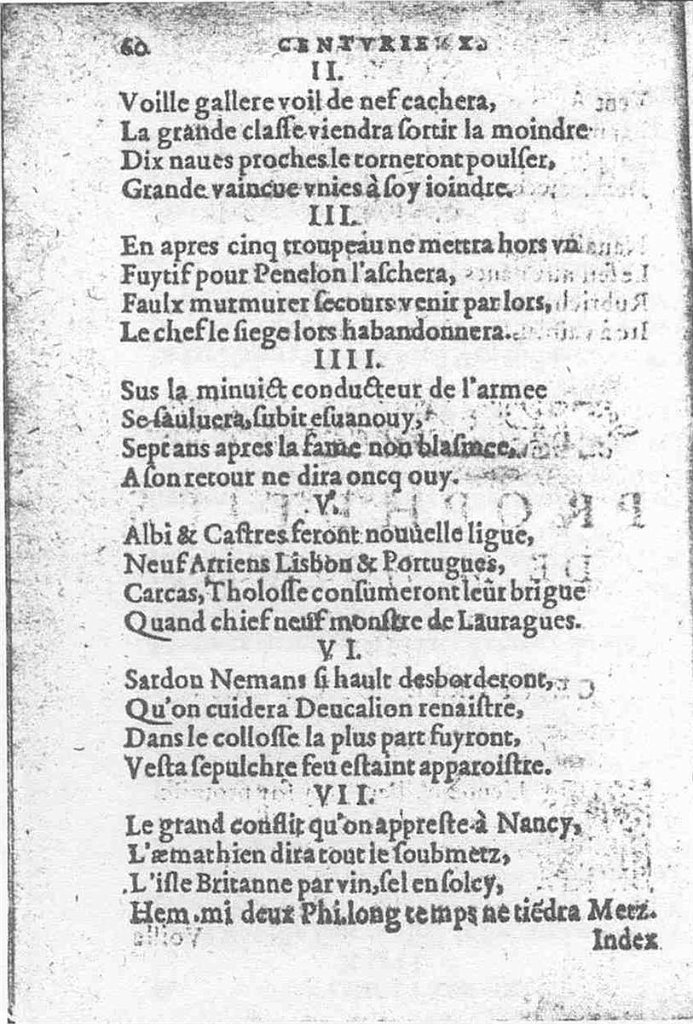 60. CENTVRIE X.
II.
Voille gallere voil de nef cachera,
La grande claſſe viendra ſortir la moindre
Dix naues proches le torneront poulſer,
Grande vaincue vnies à ſoy ioindre.
III.
En apres cinq troupeau ne mettra hors vn
Fuytif pour Penelon l'aſchera,
Faulx murmurer ſecours venir par lors,
Le chef le ſiege lors habandonnera.
IIII.
Sus la minuict conducteur de l'armee
Se ſauluera, ſubit eſuanouy,
Sept ans apres la fame non blaſmee,
A ſon retour ne dira oncq ouy.
V.
Albi & Caſtres feront nouuelle ligue,
Neuf Arriens Lisbon & Portugues,
Carcas, Tholoſſe conſumeront leur brigue
Quand chief neuf monſtre de Lauragues.
VI.
Sardon Nemans ſi hault desborderont,
Qu'on cuidera Deucalion renaiſtre,
Dans le colloſſe la plus part fuyront,
Veſta ſepulchre feu eſtaint apparoiſtre.
VII.
Le grand conflit qu'on appreſte à Nancy,
L'æmathien dira tout ie ſoubmetz,
L'iſle Britanne par vin, ſel en ſolcy,
Hem. mi deux Phi. long temps ne tiēdra Metz.
Index